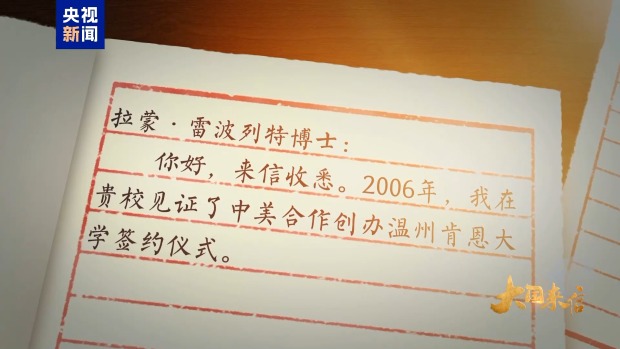 央视
新闻
拉蒙·雷波列特博士：
你好，来信收悉。2006年，我在
贵校见证了中美合作创办温州肯恩大
学签约仪式。
大国来信